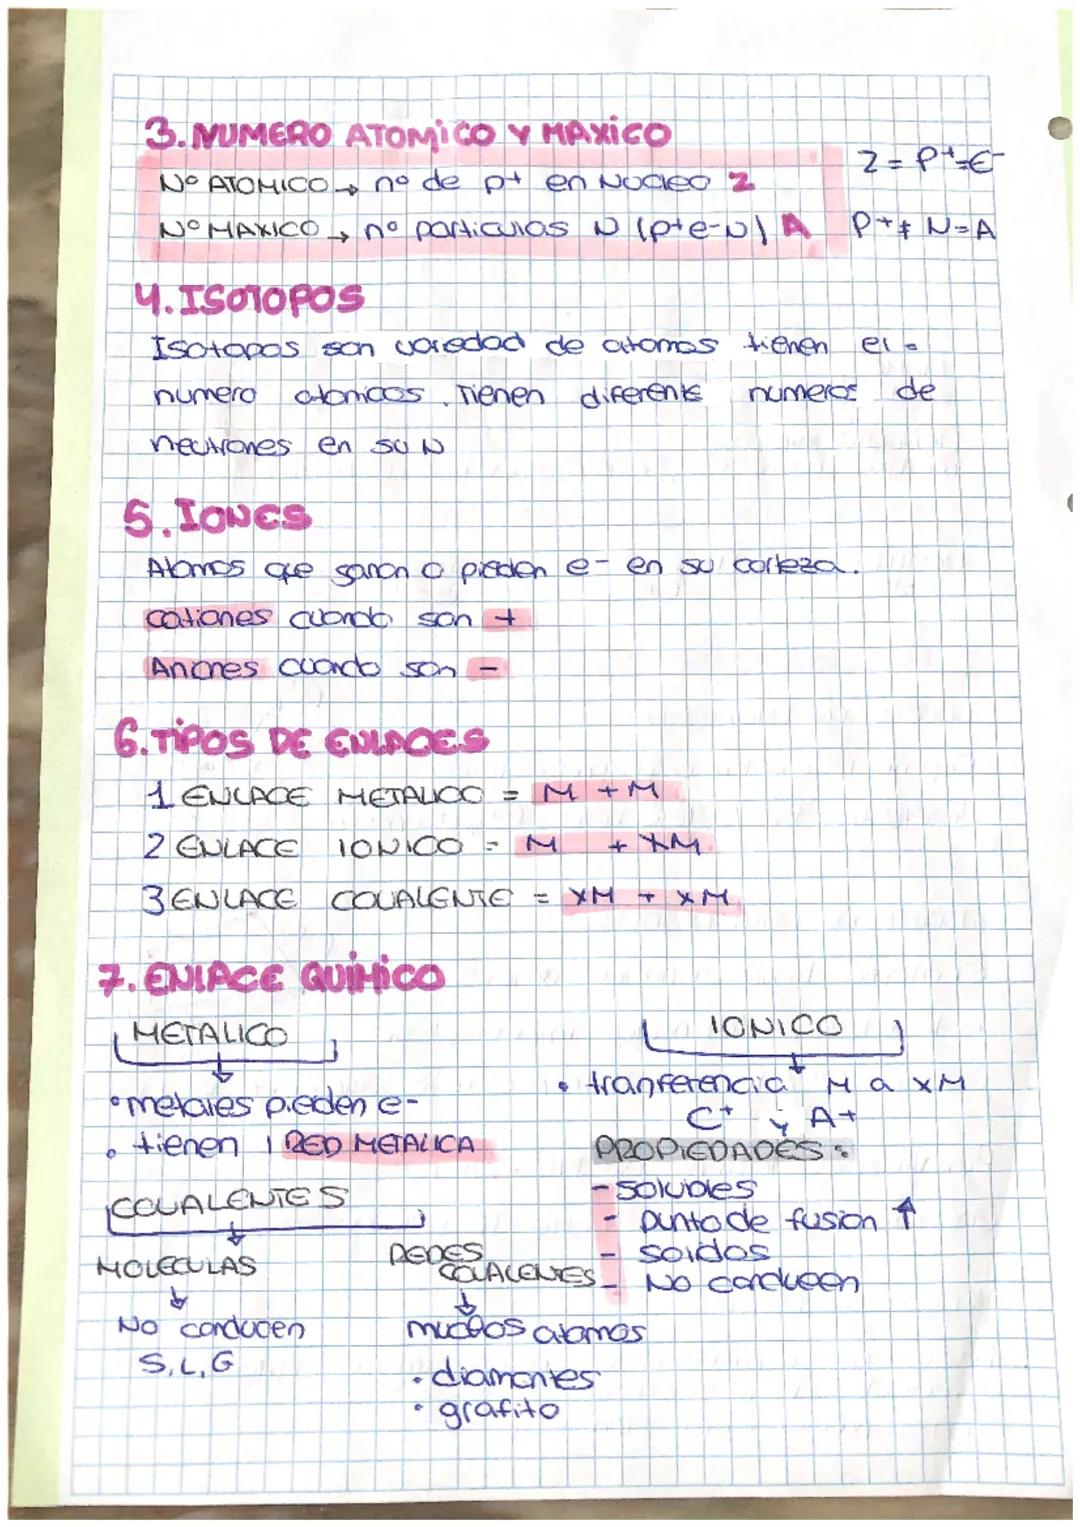 3. NUMERO ATOMICO Y MAXICO
Nº ATOMICO → nº de p+ en Nucleo Z
Z = P+=e-
Nº MAXICO → nº particulas N (p+e-N) A
P+ + N=A
4. ISOTOPOS
Isotopos son variedad de atomos tienen el =
numero atomicos. Tienen diferents numeros de
neutrones en su N
5. IONES
Atomos que ganan o pieden e- en su corteza.
cationes cuando son +
Aniones cuando son -
6. TIPOS DE ENLACES
1 ENLACE METALICO = M + M
2 ENLACE IONICO = M + XM
3 ENLACE COVALENTE = XM + XM
7. ENLACE QUIMICO
METALICO
• metales pieden e-
• tienen 1 RED METALICA
IONICO
• tranferencia M a XM
C+ y A+
PROPIEDADES:
- solubles
- punto de fusion ↑
- solidos
- No conducen
COVALENTES
MOLECULAS
No conducen
S, L, G
REDES
COVALENTES
muchos atomos
• diamantes
• grafito